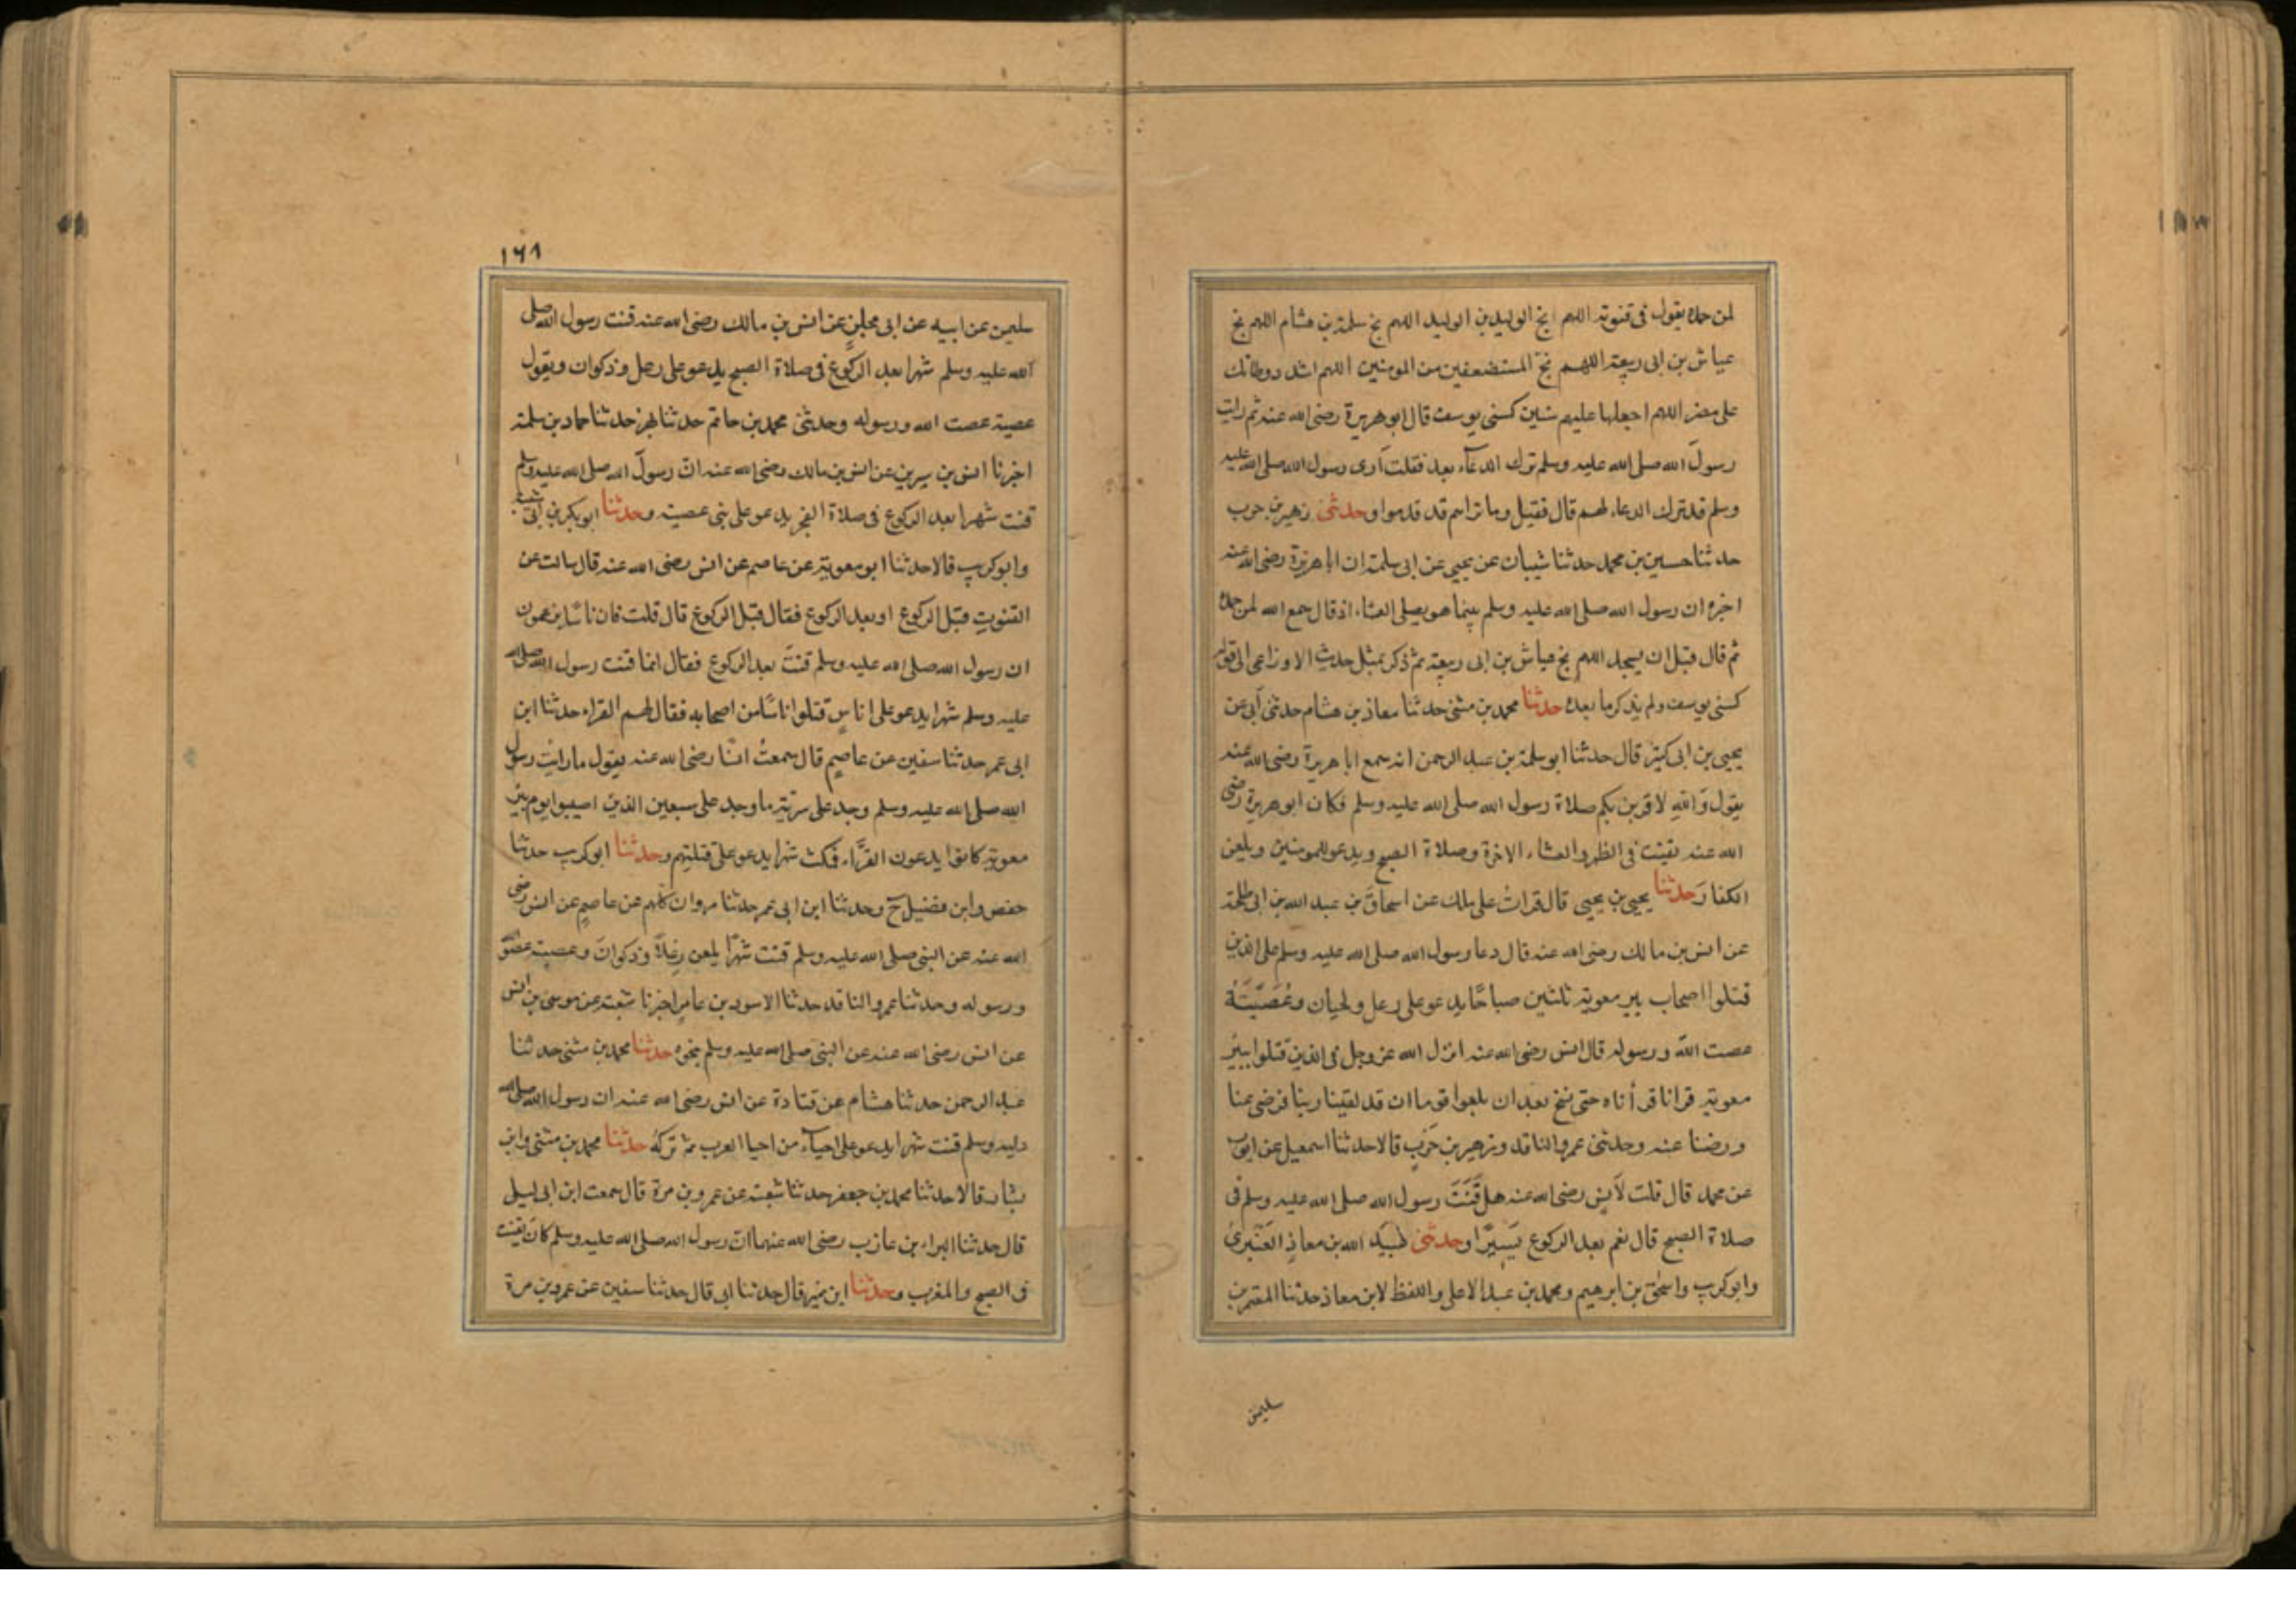 لمن حمده يقول فى قنوته اللهم انج الوليد بن الوليد اللهم نج سلمة بن هشام اللهم نج
عياش بن ابى ربيعة اللهم نج المستضعفين من المومنين اللهم اشدد وطاتك
على مضر اللهم اجعلها عليهم سنين كسنى يوسف قال ابو هريرة رضى الله عنه ثم رايت
رسول الله صلى الله عليه وسلم ترك الدعاء بعد فقلت أرى رسول الله صلى الله عليه
وسلم قد ترك الدعاء لهم قال فقيل وما تراهم قد قدموا وحدثنى زهير بن حرب
حدثنا حسين بن محمد حدثنا شيبان عن يحيى عن ابى سلمة ان ابا هريرة رضى الله عنه
اخبره ان رسول الله صلى الله عليه وسلم بينما هو يصلى العشاء اذ قال سمع الله لمن حمده
ثم قال قبل ان يسجد اللهم نج عياش بن ابى ربيعة ثم ذكر بمثل حديث الاوزاعى الى قوله
كسنى يوسف ولم يذكر ما بعده حدثنا محمد بن مثنى حدثنا معاذ بن هشام حدثنى أبى عن
يحيى بن ابى كثير قال حدثنا ابو سلمة بن عبد الرحمن انه سمع ابا هريرة رضى الله عنه
يقول وَاللهِ لاقربن بكم صلاة رسول الله صلى الله عليه وسلم فكان ابو هريرة رضى
الله عنه يقنت فى الظهر والعشاء الاخرة وصلاة الصبح ويدعو للمومنين ويلعن
الكفار وحدثنا يحيى بن يحيى قال قراتُ على ملك عن اسحاق بن عبد الله بن ابى طلحة
عن انس بن مالك رضى الله عنه قال دعا رسول الله صلى الله عليه وسلم على الذين
قتلوا اصحاب بير معوية ثلثين صباحًا يدعو على رعل ولحيان وعُصَيَّة
عصت الله ورسوله قال انس رضى الله عنه انزل الله عز وجل فى الذين قتلوا ببيرُ
معوية قرانا قرأناه حتى نسخ بعد ان بلغوا قومنا ان قد لقينا ربنا فرضى عنا
ورضنا عنه وحدثنى عمرو الناقد وزهير بن حرب قالا حدثنا اسمعيل عن ايوب
عن محمد قال قلت لأنس رضى الله عنه هل قَنَتَ رسول الله صلى الله عليه وسلم فى
صلاة الصبح قال نعم بعد الركوع يَسِيرًا وحدثنى عبيد الله بن معاذ العَنْبرىُ
وابو كريب واسحٰق بن ابرهيم ومحمد بن عبد الاعلى واللفظ لابن معاذ حدثنا المعتمر بن
سليمن
١٦٨
سليمن عن ابيه عن ابى مجلز عن انس بن مالك رضى الله عنه قنت رسول الله صلى
الله عليه وسلم شهرا بعد الركوع فى صلاة الصبح يدعو على رعل وذكوان ويقول
عصية عصت الله ورسوله وحدثنى محمد بن حاتم حدثنا بهز حدثنا حماد بن سلمة
اخبرنا انس بن سيرين عن انس بن مالك رضى الله عنه انّ رسولَ الله صلى الله عليه وسلم
قنت شهرا بعد الركوع فى صلاة الفجر يدعو على بنى عصية وحدثنا ابو بكر بن أبى شيبة
وابو كريب قالا حدثنا ابو معوية عن عاصم عن انس رضى الله عنه قال سالت عن
القنوتِ قبل الركوع او بعد الركوع فقال قبل الركوع قال قلت فان ناسًا يزعمون
ان رسول الله صلى الله عليه وسلم قنتَ بعد الركوع فقال انما قنت رسول الله صلى الله
عليه وسلم شهرا يدعو على اناسٍ قتلوا اناسًا من اصحابه فقال لهم القراء حدثنا ابن
ابى عمر حدثنا سفين عن عاصمٍ قال سمعتُ انسًا رضى الله عنه يقول ما رايتُ رسول
الله صلى الله عليه وسلم وجد على سرية ما وجد على سبعين الذين اصيبوا يوم بئر
معوية كانوا يدعون القرّاء فمكث شهرا يدعو على قتلتهم وحدثنا ابو كريب حدثنا
حفص وابن فضيل ح وحدثنا ابن ابى عمر حدثنا مروان كلهم عن عاصمٍ عن انس رضى
الله عنه عن النبى صلى الله عليه وسلم قنت شهرًا يلعن رِعلاً وذكوانَ وعصية عصوا الله
ورسوله وحدثنا عمرو الناقد حدثنا الاسود بن عامر اخبرنا شعبة عن موسى بن انس
عن انس رضى الله عنه عن النبى صلى الله عليه وسلم بنحوه حدثنا محمد بن مثنى حدثنا
عبد الرحمن حدثنا هشام عن قتادة عن انس رضى الله عنه ان رسول الله صلى الله
عليه وسلم قنت شهرا يدعو على احياء من احيا العرب ثم تركهُ حدثنا محمد بن مثنى وابن
بشار قالا حدثنا محمد بن جعفر حدثنا شعبة عن عمرو بن مرة قال سمعت ابن ابى ليلى
قال حدثنا البراء بن عازب رضى الله عنهما انّ رسول الله صلى الله عليه وسلم كان يقنت
فى الصبح والمغرب وحدثنا ابن نمير قال حدثنا ابى قال حدثنا سفين عن عمرو بن مرة